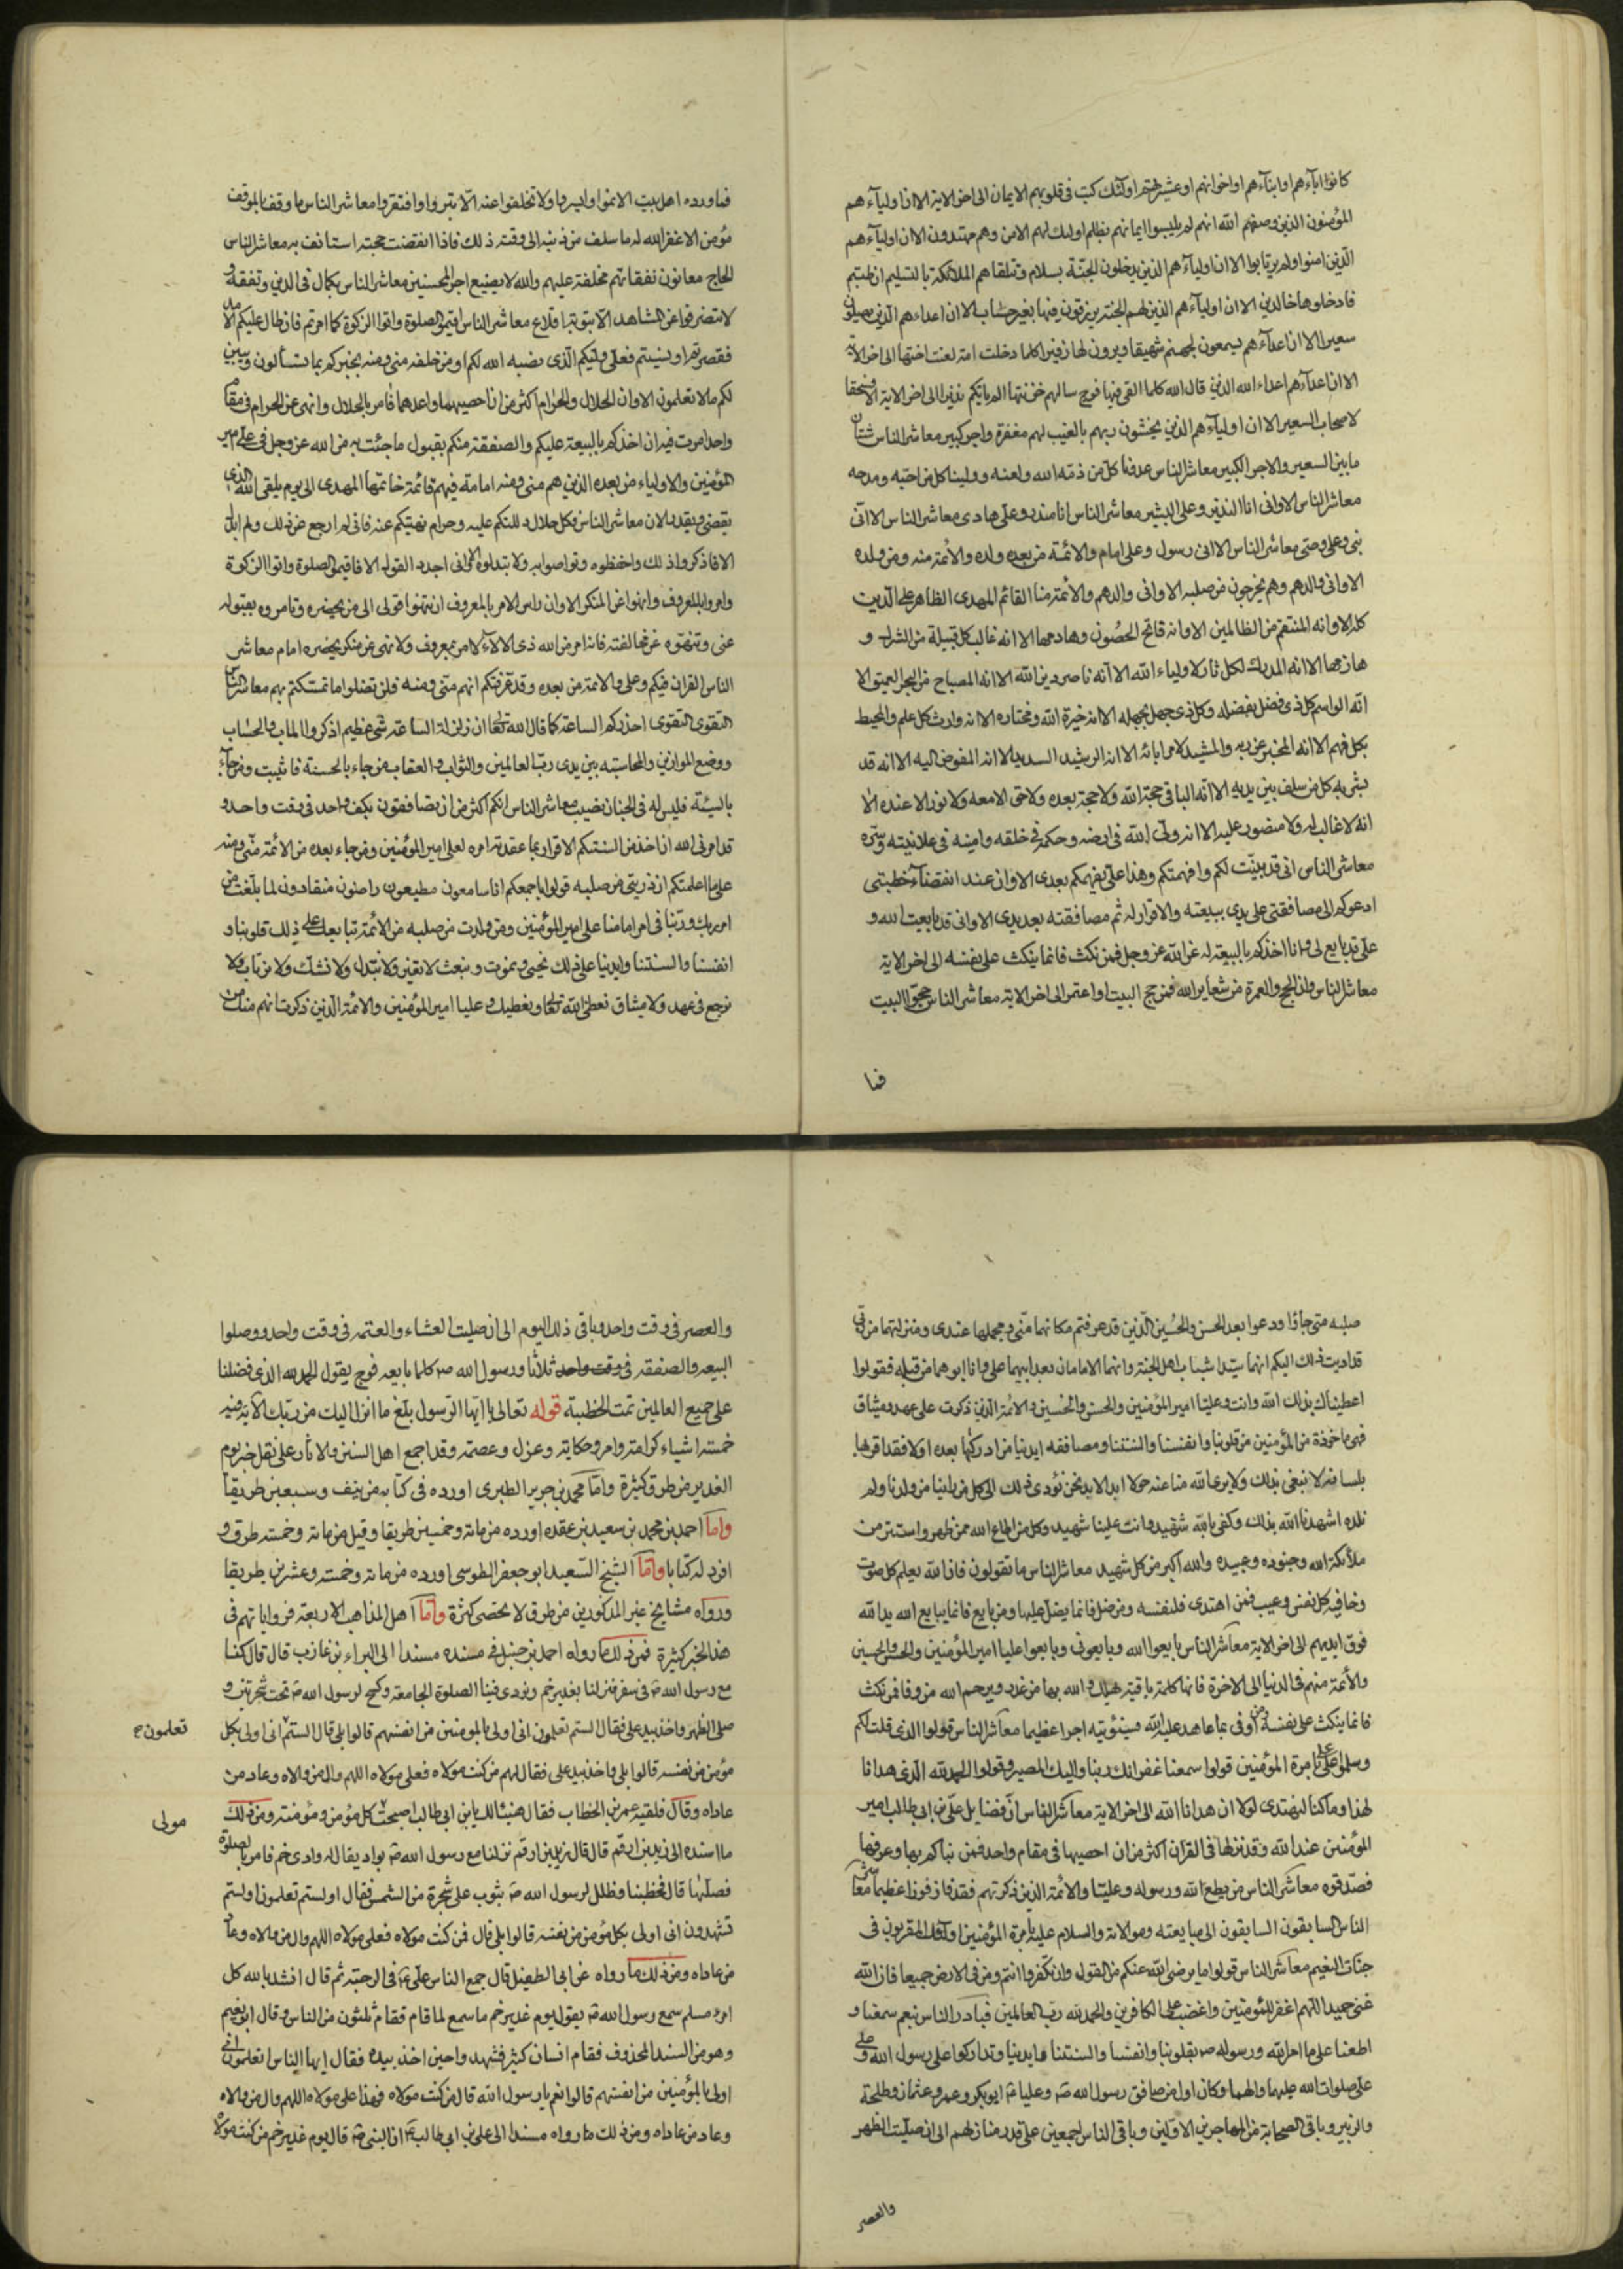 كانوا اباءهم او ابناءهم او اخوانهم او عشيرتهم اولئك كتب في قلوبهم الايمان الى اخر الاية الا ان اولياءهم
المؤمنون الذين وصفهم الله انهم لم يلبسوا ايمانهم بظلم اولئك لهم الامن وهم مهتدون الا ان اولياءهم
الذين امنوا ولم يرتابوا الا ان اولياءهم الذين يدخلون الجنة بسلام وتتلقاهم الملائكة بالتسليم ان طبتم
فادخلوها خالدين الا ان اولياءهم الذين لهم الجنة يرزقون فيها بغير حساب الا ان اعداءهم الذين يصلون
سعيرا الا ان اعداءهم يسمعون لجهنم شهيقا ويرون لها زفيرا كلما دخلت امة لعنت اختها الى اخر الاية
الا ان اعداءهم اعداء الله الذين قال الله كلما القى فيها فوج سالهم خزنتها الم ياتكم نذير الى اخر الاية الا فسحقا
لاصحاب السعير الا ان اولياءهم الذين يخشون ربهم بالغيب لهم مغفرة واجر كبير معاشر الناس شتان
ما بين السعير والاجر الكبير معاشر الناس عدونا كل من ذمه الله ولعنه وولينا كل من احبه ومدحه
معاشر الناس الا واني انا النذير وعلى البشير معاشر الناس انا منذر وعلى هادى معاشر الناس الا اني
نبى وعلى وصى معاشر الناس الا اني رسول وعلى امام والائمة من بعده ولده والائمة منه ومن ولده
الا واني والدهم وهم يخرجون من صلبه الا واني والدهم والائمة منا القائم المهدى الظاهر على الدين
كله الا وانه المنتقم من الظالمين الا وانه فاتح الحصون وهادمها الا انه غالب كل قبيلة من الشرك و
هازمها الا انه المدرك لكل ثار لاولياء الله الا انه ناصر دين الله الا انه المصباح من البحر العميق الا
انه الواسم كل ذى فضل بفضله وكل ذى جهل بجهله الا انه خيرة الله ومختاره الا انه وارث كل علم والمحيط
بكل فهم الا انه المخبر عن ربه والمشيد لامر ابائه الا انه الرشيد السديد الا انه المفوض اليه الا انه قد
بشر به كل من سلف بين يديه الا انه الباقي حجة الله ولا حجة بعده ولا حق الا معه ولا نور الا عنده الا
انه لا غالب له ولا منصور عليه الا انه ولى الله في ارضه وحكمه في خلقه وامينه في علانيته وسره
معاشر الناس انى قد بينت لكم وافهمتكم وهذا على يفهمكم بعدى الا وان عند انقضاء خطبتى
ادعوكم الى مصافقتى على يدى ببيعته والاقرار له ثم مصافقته بعد يدى الا وانى قد بايعت الله و
على قد بايع لى وانا اخذكم بالبيعة له عن الله عز وجل فمن نكث فانما ينكث على نفسه الى اخر الاية
معاشر الناس وان الحج والعمرة من شعاير الله فمن حج البيت او اعتمر الى اخر الاية معاشر الناس حجوا البيت
فما
فما ورده اهل بيت الا نموا وايسروا ولا تخلفوا عنه الا بتروا وافتقروا معاشر الناس ما وقف بالموقف
مؤمن الا غفر الله له ما سلف من ذنبه الى وقته ذلك فاذا انقضت حجته استانف به معاشر الناس
الحاج معانون نفقاتهم مخلفة عليهم والله لا يضيع اجر المحسنين معاشر الناس بكمال في الدين وتفقه و
لا تنصرفوا عن المشاهد الا بتوبة واقلاع معاشر الناس اقيموا الصلوة واتوا الزكوة كما امرتم فان طال عليكم الامد
فقصرتم او نسيتم فعلى وليكم الذى نصبه الله لكم او من خلفه منى ومنه يخبركم بما تسألون ويبين
لكم ما لا تعلمون الا وان الحلال والحرام اكثر من ان احصيهما واعدهما فامر بالحلال وانهى عن الحرام في مقام
واحد امرت فيه ان اخذكم بالبيعة عليكم والصفقة منكم بقبول ما جئت به من الله عز وجل في على امير
المؤمنين والاولياء من بعده الذين هم منى ومنه امامة فيهم قائمة خاتمها المهدى الى يوم يلقى الله الذى
يقضى ويقدر الان معاشر الناس وكل حلال دللتكم عليه وحرام نهيتكم عنه فانى لم ارجع عن ذلك ولم ابدل
الا فاذكروا ذلك واحفظوه وتواصوا به ولا تبدلوه الا وانى اجدد القول الا فاقيموا الصلوة واتوا الزكوة
وامروا بالمعروف وانهوا عن المنكر الا وان راس الامر بالمعروف ان تنتهوا قولى الى من يحضره وتامروه بقبوله
عنى وتنهوه عن مخالفته فانه امر من الله ذى الالاء لا امر بمعروف ولا نهى عن منكر بحضرة امام معاشر
الناس القران فيكم وعلى والائمة من بعده وقد عرفتكم انهم منى ومنه فلن تضلوا ما تمسكتم بهم معاشر الناس
التقوى التقوى احذركم الساعة كما قال الله تعالى ان زلزلة الساعة شئ عظيم اذكروا الماب والحساب
ووضع الموازين والمحاسبة بين يدى رب العالمين والثواب والعقاب من جاء بالحسنة فاثيب ومن جاء
بالسيئة فليس له في الجنان نصيب معاشر الناس انكم اكثر من ان تصافقون بكف واحد في وقت واحد و
قد امرنى الله ان اخذ من السنتكم الاقرار بما عقدت امره لعلى امير المؤمنين ومن جاء بعده من الائمة منى ومنه
على ما اعلمتكم ان ذريتى من صلبه قولوا باجمعكم انا سامعون مطيعون راضون منقادون لما بلغت من
امر ربك وربنا في امر امامنا على امير المؤمنين ومن ولدت من صلبه من الائمة نبايعك على ذلك قلوبنا و
انفسنا والسنتنا وايدينا على ذلك نحيى ونموت ونبعث لا نغير ولا نبدل ولا نشك ولا نرتاب ولا
نرجع في عهد ولا ميثاق نعطى الله تعالى ونعطيك وعليا امير المؤمنين والائمة الذين ذكرت انهم منك من
صلبه متى جاؤا ودعوا بعد الحسن والحسين الذين قد عرفتم مكانهما منى ومحلهما عندى ومنزلتهما من ربى
قد اديت ذلك اليكم انهما سيدا شباب اهل الجنة وانهما الامامان بعد ابيهما على وانا ابوهما من قبله فقولوا
اعطيناك بذلك الله وانت وعليا امير المؤمنين والحسن والحسين والائمة الذين ذكرت على عهد وميثاق
فهى ماخوذة من المؤمنين من قلوبنا وانفسنا والسنتنا ومصافقه ايدينا من ادركها بعده او لا فقد اقر بها
بلسانه لا نبغى بذلك ولا يرى الله منا عنه حولا ابدا لابد نحن نؤدى ذلك الى كل من راينا من ولدنا ولم
نلده اشهدنا الله بذلك وكفى بالله شهيد وانت علينا شهيد وكل من اطاع الله ممن ظهر واستتر من
ملائكة الله وجنوده وعبيده والله اكبر من كل شهيد معاشر الناس ما تقولون فان الله يعلم كل صوت
وخافيه كل نفس وعيب فمن اهتدى فلنفسه ومن ضل فانما يضل عليها ومن بايع فانما يبايع الله يد الله
فوق ايديهم الى اخر الاية معاشر الناس بايعوا الله وبايعونى وبايعوا عليا امير المؤمنين والحسن والحسين
والائمة منهم في الدنيا الى الاخرة فانها كلمة باقية يهلك الله بها من غدر ويرحم الله من وفا فمن نكث
فانما ينكث على نفسه ومن اوفى بما عاهد عليه الله فسيئوتيه اجرا عظيما معاشر الناس قولوا الذى قلت لكم
وسلموا على على بامرة المؤمنين قولوا سمعنا غفرانك ربنا واليك المصير وقولوا الحمد لله الذى هدانا
لهذا وما كنا لنهتدى لولا ان هدانا الله الى اخر الاية معاشر الناس ان فضايل على بن ابى طالب امير
المؤمنين عند الله وقد نزلها في القران اكثر من ان احصيها في مقام واحد فمن نباكم بها وعرفها
فصدقوه معاشر الناس من يطع الله ورسوله وعليا والائمة الذين ذكرتهم فقد فاز فوزا عظيما معاشر
الناس السابقون السابقون الى مبايعته وموالاته والسلام عليه بامرة المؤمنين اولئك المقربون في
جنات النعيم معاشر الناس قولوا ما يرضى الله عنكم من القول وان تكفروا انتم ومن في الارض جميعا فان الله
غنى حميد اللهم اغفر للمؤمنين واغضب على الكافرين والحمد لله رب العالمين فبادر الناس نعم سمعنا و
اطعنا على ما امر الله ورسوله ص بقلوبنا وانفسنا والسنتنا وايدينا وتداركوا على رسول الله وعلى
على صلوات الله عليهما والهما وكان اول من صافق رسول الله ص وعليا ع ابوبكر وعمر وعثمان وطلحة
والزبير وباقى الصحابة من المهاجرين الاولين وباقى الناس اجمعين على قدر منازلهم الى ان صليت الظهر
والعصر
والعصر في وقت واحد وباقى ذلك اليوم الى ان صليت العشاء والعتمه في وقت واحد ووصلوا
البيعه والصفقه في وقت واحد ثلاثا ورسول الله ص كلما بايعه فوج يقول الحمد لله الذى فضلنا
على جميع العالمين تمت الخطبة قوله تعالى يا ايها الرسول بلغ ما انزل اليك من ربك الاية فيه
خمسة اشياء كرامة وامر وحكاية وعزل وعصمة وقد اجمع اهل السنن والاثار على نقل خبر يوم
الغدير من طرق كثيرة واما محمد بن جرير الطبرى اورده في كتابه من نيف وسبعين طريقا
واما احمد بن محمد بن سعيد بن عقده اورده من مائة وخمسين طريقا وقيل من مائة وخمسة طرق و
افرد له كتابا واما الشيخ السعيد ابو جعفر الطوسى اورده من مائة وخمسة وعشرين طريقا
ورواه مشايخ غير المذكورين من طرق لا تحصى كثرة واما اهل المذاهب الاربعة فرواياتهم في
هذا الخبر كثيرة فمن ذلك ما رواه احمد بن حنبل في مسنده مسندا الى البراء بن عازب قال قال كنا
مع رسول الله ص في سفر فنزلنا بغدير خم ونودى فينا الصلوة الجامعة وكسح لرسول الله ص تحت شجرتين و
صلى الظهر واخذ بيد على فقال الستم تعلمون انى اولى بالمومنين من انفسهم قالوا بلى قال الستم انى اولى بكل
تعلمون ح
مؤمن من نفسه قالوا بلى واخذ بيد على فقال لهم من كنت مولاه فعلى مولاه اللهم وال من والاه وعاد من
عاداه وقال فلقيه عمر بن الخطاب فقال هنيئا لك يابن ابى طالب اصبحت كل مؤمن ومؤمنة ومن ذلك
مولى
ما اسنده الى زيد بن ارقم قال قال زيد بن ارقم نزلنا مع رسول الله ص بواد يقال له وادى خم فامر بالصلوة
فصلاها قال فخطبنا وظلل لرسول الله ص بثوب على شجرة من الشمس فقال اولستم تعلمون اولستم
تشهدون انى اولى بكل مؤمن من نفسه قالوا بلى قال فمن كنت مولاه فعلى مولاه اللهم وال من والاه وعاد
من عاداه ومن ذلك ما رواه عن ابى الطفيل قال جمع الناس على ع في الرحبة ثم قال انشد بالله كل
امرء مسلم سمع رسول الله ص يقول يوم غدير خم ما سمع لما قام فقام ثلثون من الناس وقال ابو نعيم
وهو من السند المحذوف فقام انسان كثير فشهدوا حين اخذ بيده فقال ايها الناس اتعلمون انى
اولى بالمؤمنين من انفسهم قالوا نعم يا رسول الله قال من كنت مولاه فهذا على مولاه اللهم وال من والاه
وعاد من عاداه ومن ذلك ما رواه مسندا الى على بن ابى طالب ع ان النبى ص قال يوم غدير خم من كنت مولاه